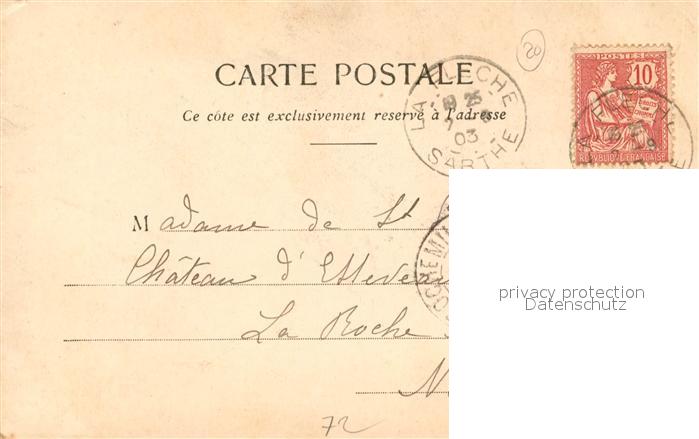 20
CARTE POSTALE
Ce côte est exclusivement reservé à l'adresse
LA FLECHE
19 25
7
03
SARTHE
POSTES
10
DROITS DE L'HOMME
REPVBLIQVE FRANÇAISE
Madame de St
Château d'
La Roche
N
privacy protection
Datenschutz
72